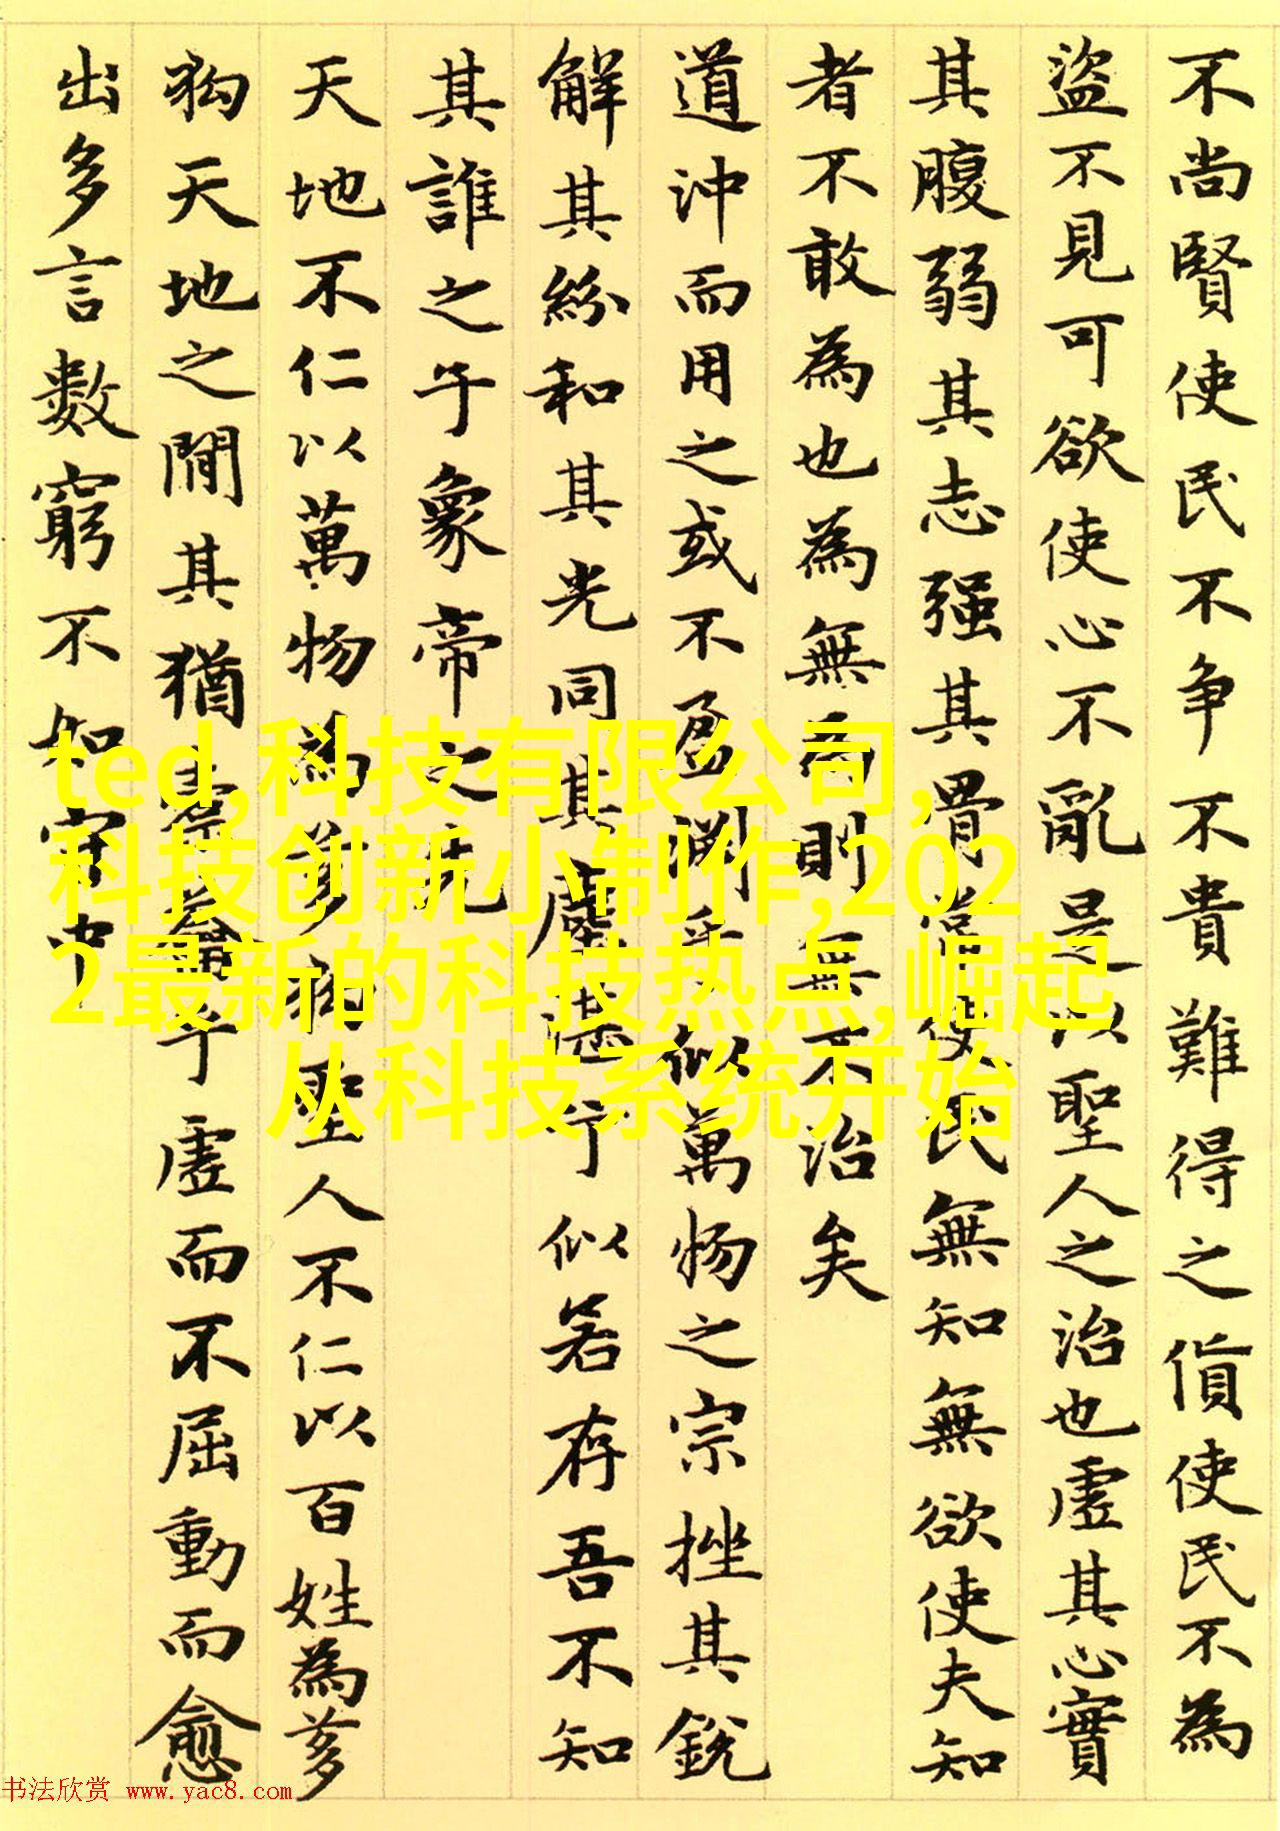 不尚賢使民不争不貴難得之貨使民不為
盜不見可欲使心不亂是以聖人之治也虛其心實
其腹弱其志强其骨常使民無知無欲使夫知
者不敢為也為無為則無不治矣
道沖而用之或不盈淵乎似萬物之宗挫其銳
解其紛和其光同其塵湛兮似若存吾不知
其誰之子象帝之先
天地不仁以萬物為芻狗聖人不仁以百姓為芻
狗天地之間其猶橐籥乎虛而不屈動而愈
出多言數窮不如守中
ted,科技有限公司,
科技创新小制作,202
2最新的科技热点,崛起
从科技系统开始
书法欣赏 www.yac8.com